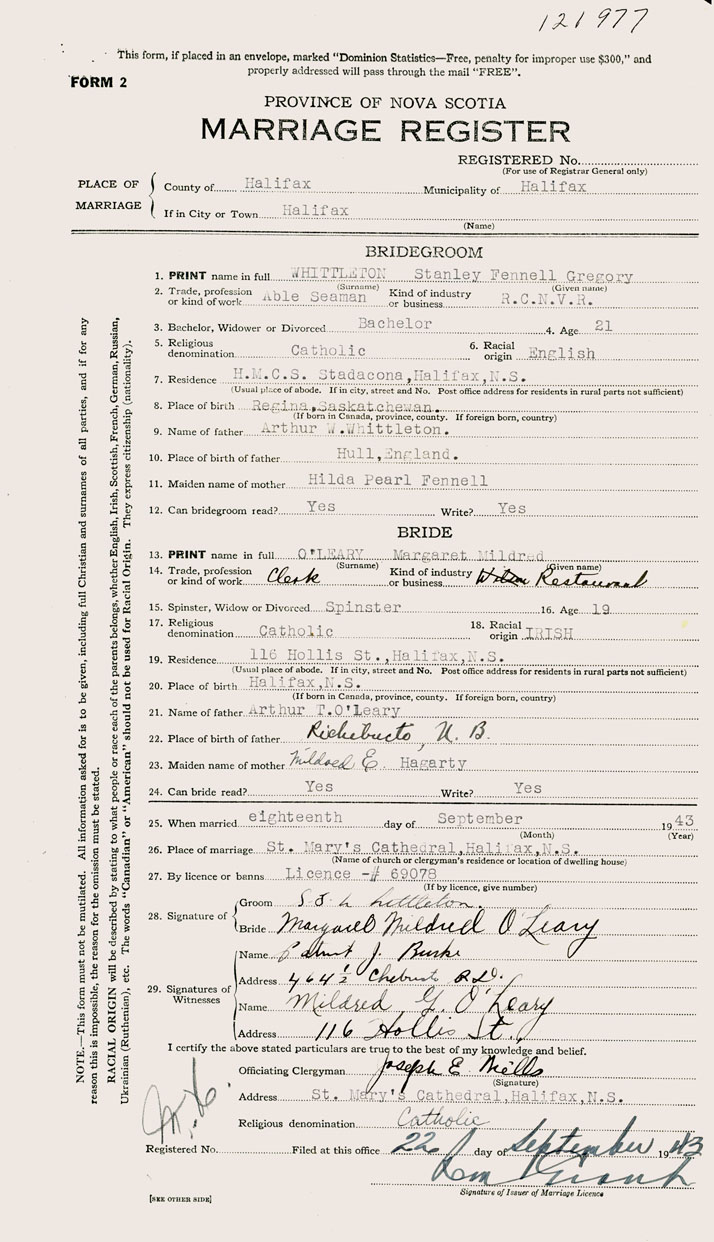 121977
This form, if placed in an envelope, marked "Dominion Statistics—Free, penalty for improper use $300," and
properly addressed will pass through the mail "FREE".
FORM 2
PROVINCE OF NOVA SCOTIA
MARRIAGE REGISTER
REGISTERED No.
(For use of Registrar General only)
PLACE OF MARRIAGE
County of Halifax Municipality of Halifax
If in City or Town Halifax
(Name)
BRIDEGROOM
1. PRINT name in full WHITTLETON Stanley Fennell Gregory
(Surname) (Given name)
2. Trade, profession or kind of work Able Seaman Kind of industry or business R.C.N.V.R.
3. Bachelor, Widower or Divorced Bachelor 4. Age 21
5. Religious denomination Catholic 6. Racial origin English
7. Residence H.M.C.S. Stadacona,Halifax,N.S.
(Usual place of abode. If in city, street and No. Post office address for residents in rural parts not sufficient)
8. Place of birth Regina,Saskatchewan.
(If born in Canada, province, county. If foreign born, country)
9. Name of father Arthur W.Whittleton.
10. Place of birth of father Hull,England.
11. Maiden name of mother Hilda Pearl Fennell
12. Can bridegroom read? Yes Write? Yes
BRIDE
13. PRINT name in full O'LEARY Margaret Mildred
(Surname) (Given name)
14. Trade, profession or kind of work Clerk Kind of industry or business Restaurant
15. Spinster, Widow or Divorced Spinster 16. Age 19
17. Religious denomination Catholic 18. Racial origin IRISH
19. Residence 116 Hollis St.,Halifax,N.S.
(Usual place of abode. If in city, street and No. Post office address for residents in rural parts not sufficient)
20. Place of birth Halifax,N.S.
(If born in Canada, province, county. If foreign born, country)
21. Name of father Arthur T.O'Leary
22. Place of birth of father Richebucto, N.B.
23. Maiden name of mother Mildred E. Hagarty
24. Can bride read? Yes Write? Yes
25. When married eighteenth day of September 1943
(Month) (Year)
26. Place of marriage St. Mary's Cathedral,Halifax,N.S.
(Name of church or clergyman's residence or location of dwelling house)
27. By licence or banns Licence -# 69078
(If by licence, give number)
28. Signature of
Groom
Bride Margaret Mildred O'Leary
29. Signatures of Witnesses
Name J. Burke
Address 464½ Chebucto Rd.
Name Mildred G. O'Leary
Address 116 Hollis St.,
I certify the above stated particulars are true to the best of my knowledge and belief.
Officiating Clergyman Joseph E. Mills
(Signature)
Address St. Mary's Cathedral,Halifax,N.S.
Religious denomination Catholic
Registered No. Filed at this office 22 day of September 1943
Signature of Issuer of Marriage Licence
[SEE OTHER SIDE]
NOTE.—This form must not be mutilated. All information asked for is to be given, including full Christian and surnames of all parties, and if for any
reason this is impossible, the reason for the omission must be stated.
RACIAL ORIGIN will be described by stating to what people or race each of the parents belongs, whether English, Irish, Scottish, French, German, Russian,
Ukrainian (Ruthenian), etc. The words "Canadian" or "American" should not be used for Racial Origin. They express citizenship (nationality).